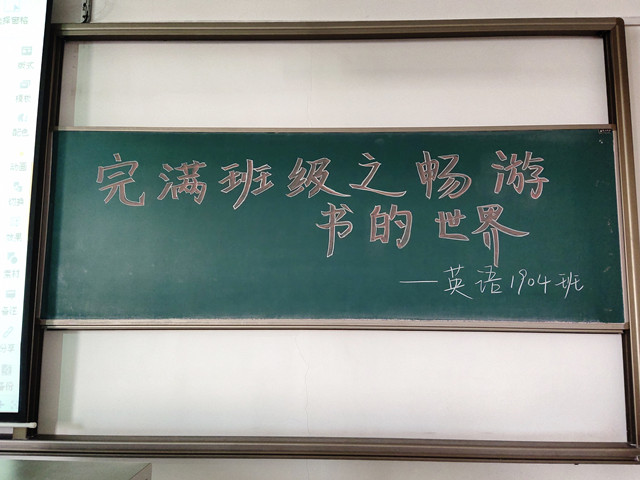 完满班级之畅游
书的世界
—英语1904班